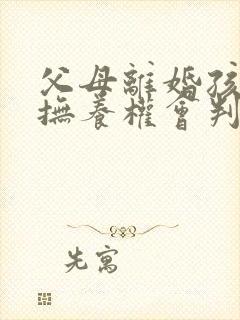 父母離婚孩
撫養權會判
先寓